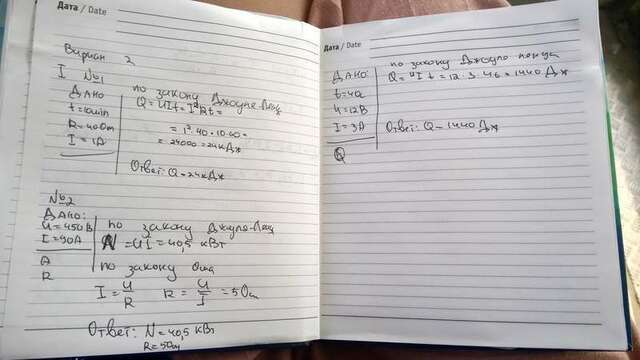 Дата / Date
Вариан 2
I №1
Дано
t=10min
R=40Om
I=1A
по закону Джоуле-Ленц
Q=UIt=I²Rt=
=1²·40·10·60=
=24000=24кДж
Ответ: Q=24кДж
№2
Дано:
U=450В
I=90A
A
R
по закону Джуля-Ленц
N=UI=40,5 кВт
по закону Ома
I=U/R R=U/I=5Om
Ответ: N=40,5 кВт
R=5Om
Дата / Date
Дано:
t=40c
U=12В
I=3A
Q
по закону Джоуле-Ленца
Q=UIt=12·3·40=1440 Дж
Ответ: Q=1440 Дж